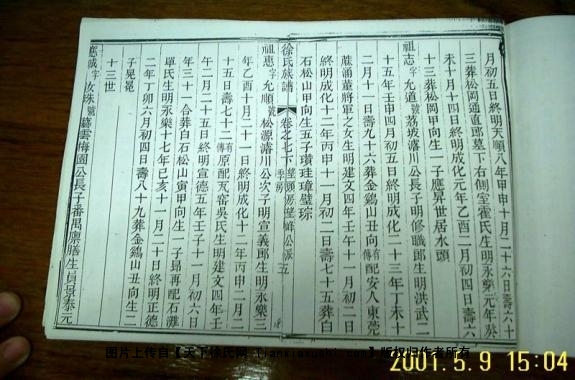 月初五日終明天順八年甲申十月二十六日壽六十
三葬松岡通直郎墓下右側室霍氏生明永樂元年癸
未十月十四日終明成化元年乙酉二月初四日壽六
十三葬松岡甲向生一子應昇世居水頭
祖志字允道號荔坡濬川公長子明修職郎生明洪武二
十五年壬申四月初五日終明成化二十三年丁未十
二月十一日壽九十六葬金鷄山丑向有傳配安人東莞
蔗涌董將軍之女生明建文四年壬午十一月初六日
終明成化十二年丙申十一月初二日壽七十五葬白
石松山甲向生五子瓚珪璋璧琮
徐氏族譜 卷之七下
祖惠字允順號松源濬川公次子明宣義郎生明永樂三
年乙酉十一月二十一日終明成化十二年丙申二月二
十五日壽七十二有傳原配瓦窑吳氏生明建文四年壬
午二月二十五日終明宣德五年壬子十一月初六日
年三十一合葬白石松山寅甲向生一子勗再配石灘
單氏生明永樂十七年己亥十一月二十日終明正德
二年丁卯六月初四日壽八十九葬金鷄山丑向生二
子晃冕
十三世
應誠字汝珠號墓雲梅園公長子番禺廩膳生員景泰元
图片上传自【天下徐氏网 】版权归作者所有
2001.5.9 15:04